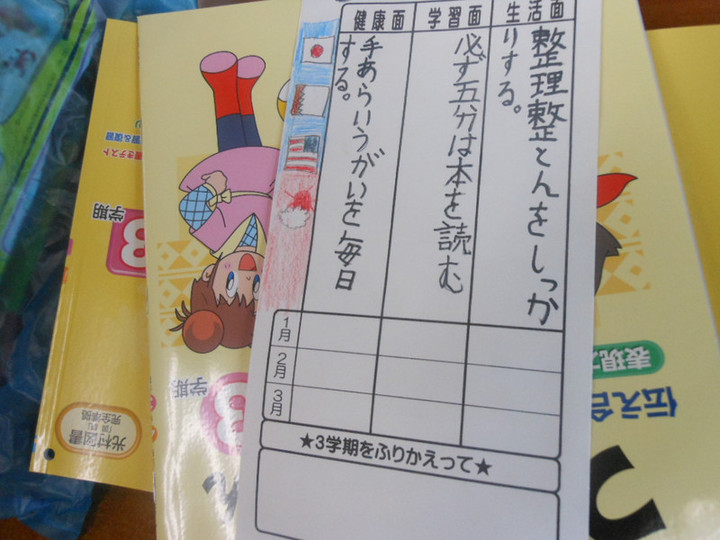 生活面
整理整とんをしっか
りする。
学習面
必ず五分は本を読む
健康面
手あらいうがいを毎日
する。
1月
2月
3月
★3学期をふりかえって★
学期
3
学期
3
光村図書
完全準拠
表現
伝え合